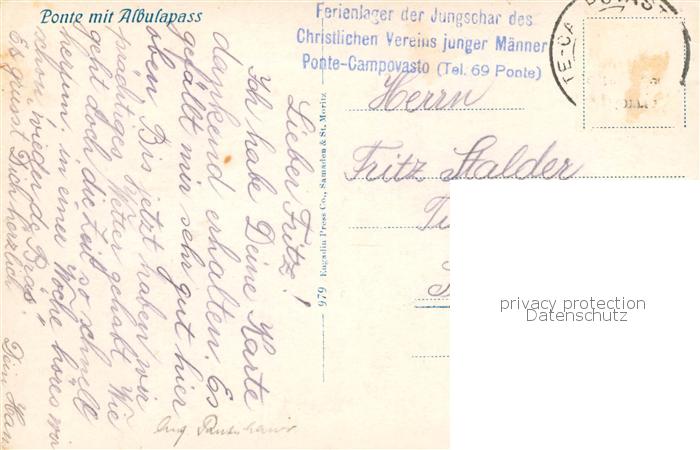 Ponte mit Albulapass
Ferienlager der Jungschar des
Christlichen Vereins junger Männer
Ponte-Campovasto (Tel. 69 Ponte)
Lieber Fritz!
Ich habe Deine Karte
dankend erhalten. Es
gefällt mir sehr gut hier
oben. Bis jetzt haben wir
prächtiges Wetter gehabt. Wie
geht doch die Zeit so schnell
herum. in einer Woche
schon wieder
Es grüsst Dich herzlich
Dein Hans
979 Engadin Press Co., Samaden & St. Moritz
Herrn
Fritz Stalder
privacy protection
Datenschutz